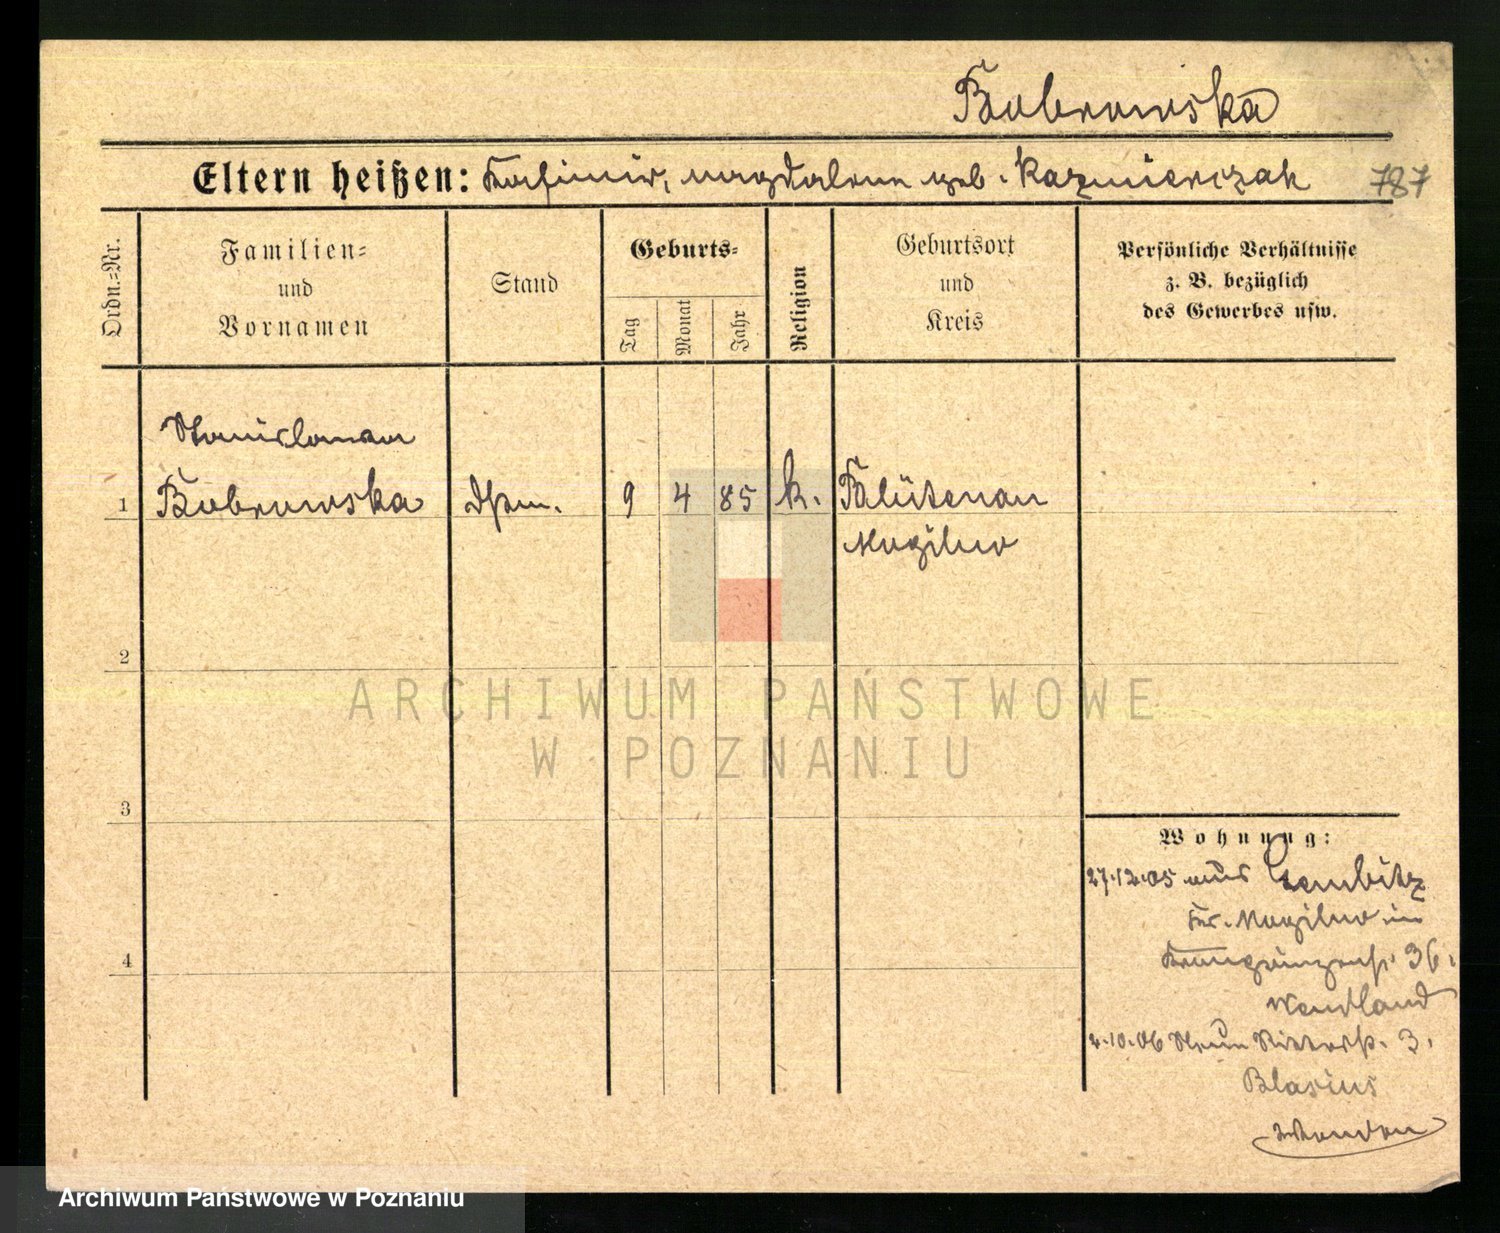 Bobrowska
Eltern heißen: Kasimir, Magdalena geb. Kazmierczak 787
Ordn.=Nr.
Familien=
und
Vornamen
Stand
Geburts=
Tag
Monat
Jahr
Religion
Geburtsort
und
Kreis
Persönliche Verhältnisse
z. B. bezüglich
des Gewerbes usw.
Stanislawa
1 Bobrowska 9 4 85 k. Blütenau
Mogilno
2
ARCHIWUM PAŃSTWOWE
W POZNANIU
3
Wohnung:
27.12.05 aus Gembitz
Kr. Mogilno in
36.
Wendland
4
4.10.06 Ritterstr. 3.
Blasius
Archiwum Państwowe w Poznaniu